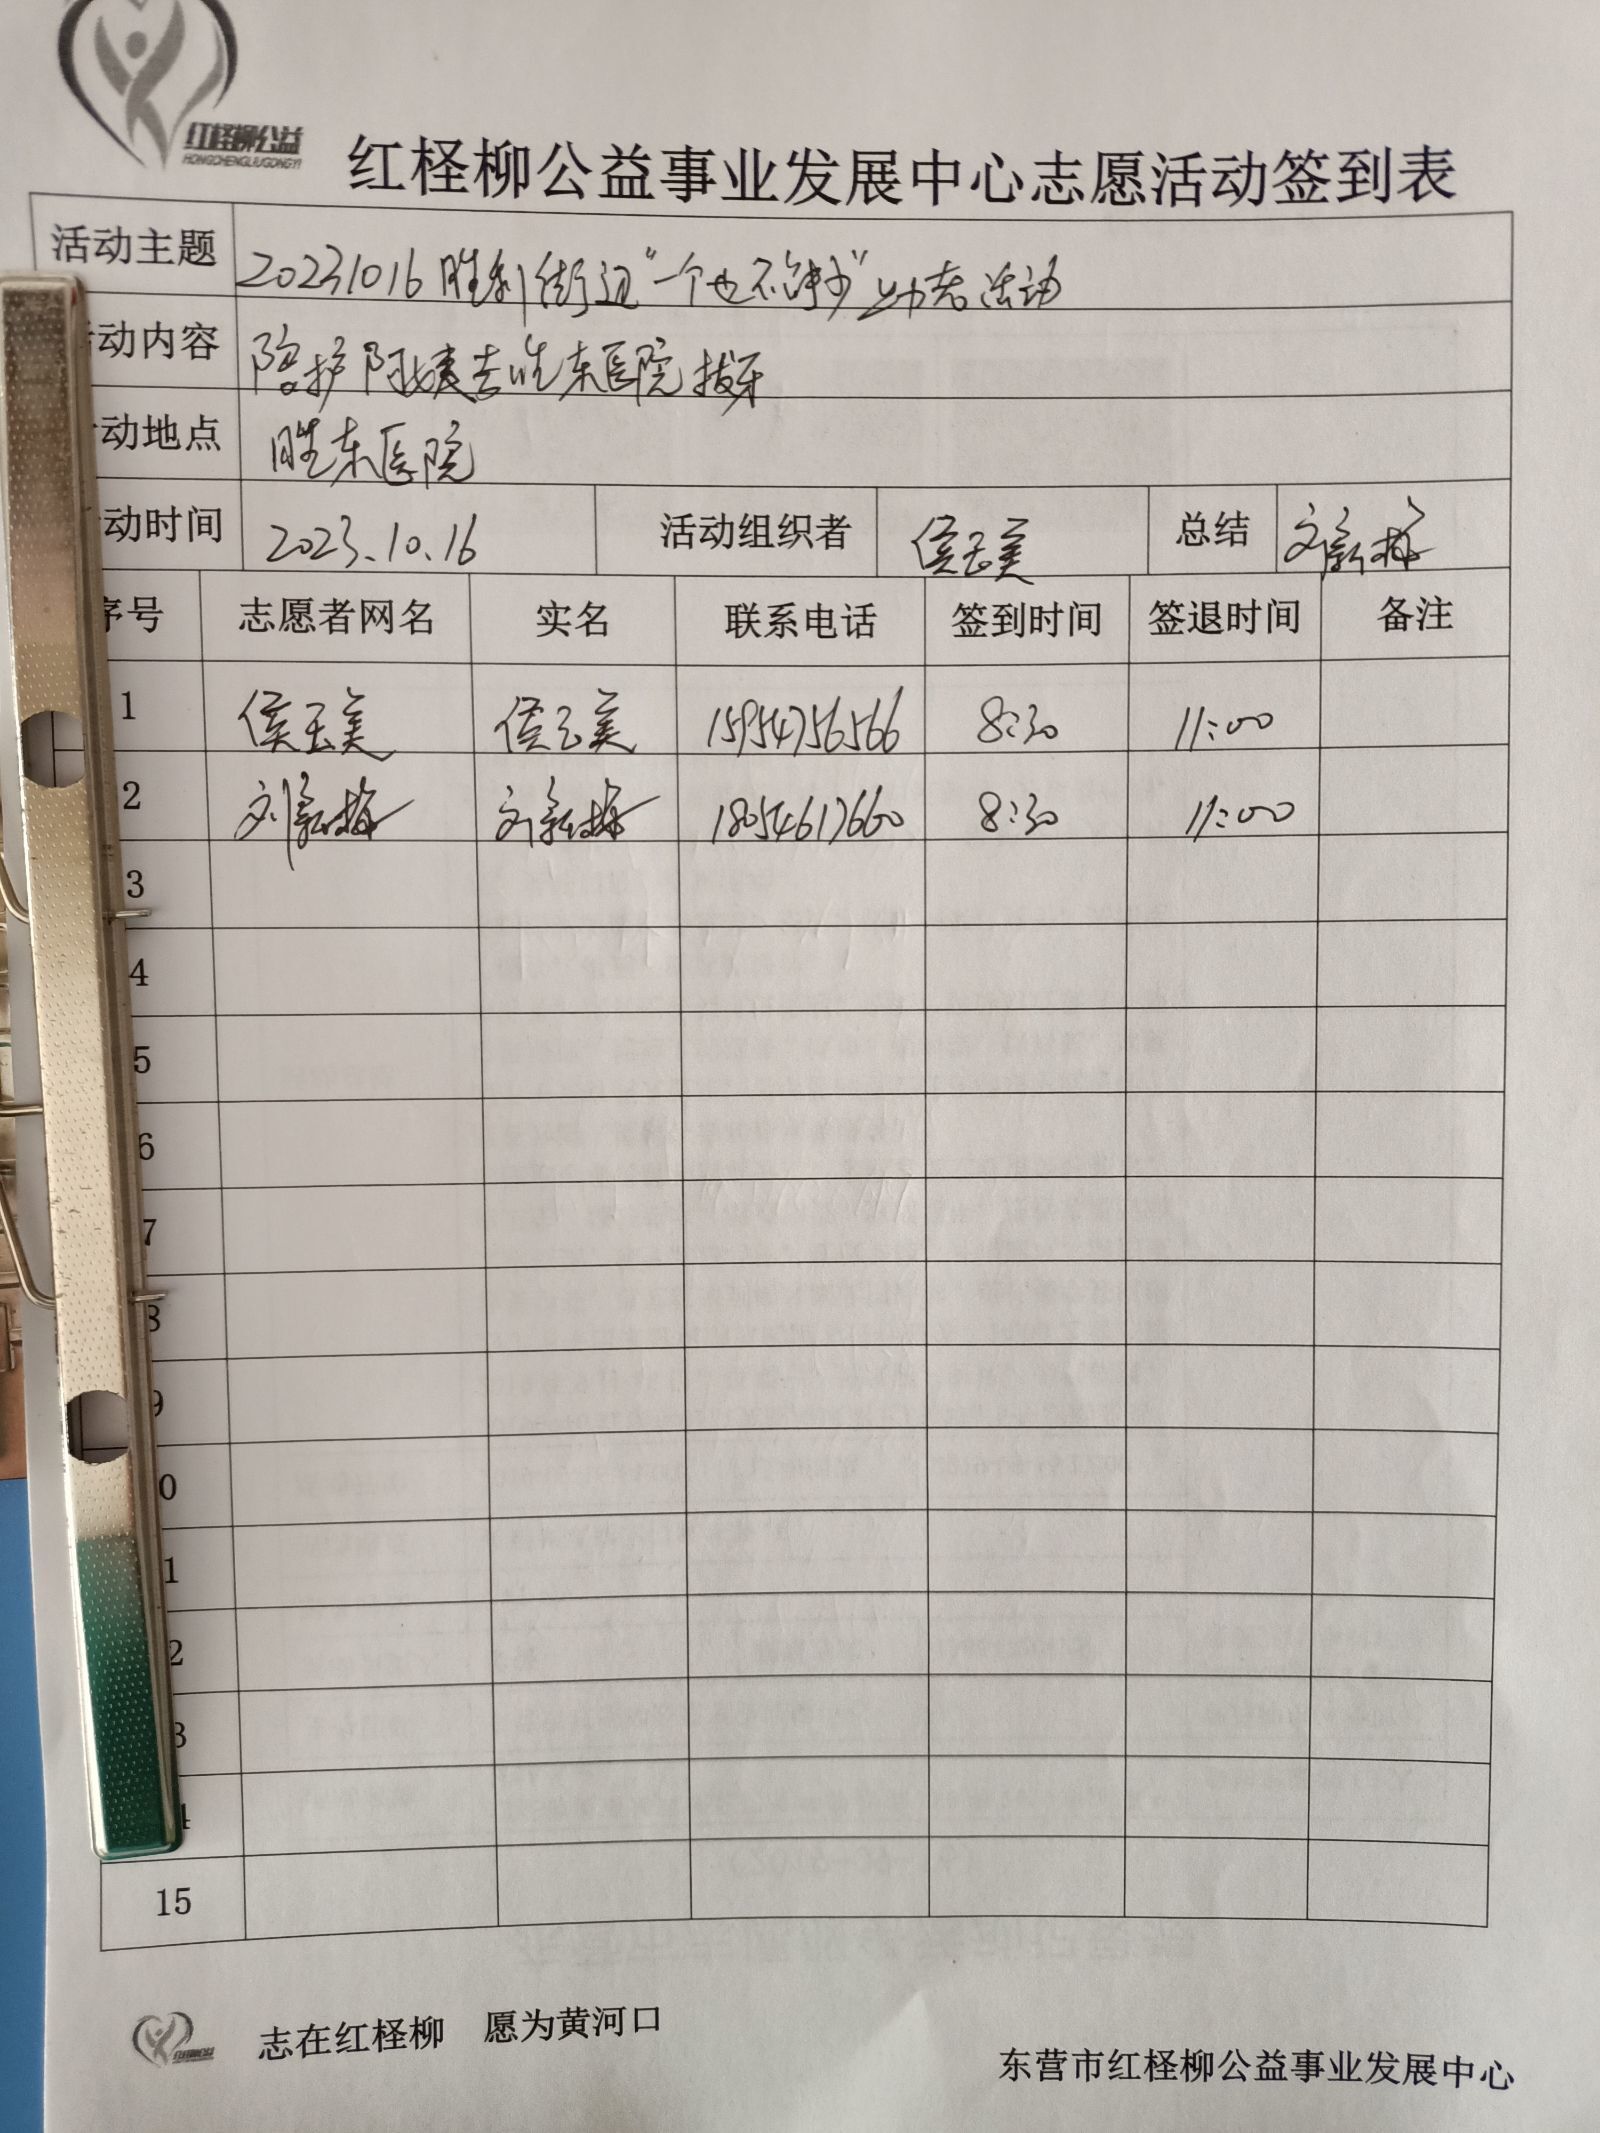 红柽柳公益
HONGCHENGLIUGONGYI
红柽柳公益事业发展中心志愿活动签到表
活动主题 20231016胜利街道“一个也不能少”助老活动
动内容 陪护阿姨去胜东医院拔牙
动地点 胜东医院
动时间 2023.10.16 活动组织者 侯玉美 总结 刘新梅
序号 志愿者网名 实名 联系电话 签到时间 签退时间 备注
1 侯玉美 侯玉美 15954756566 8:30 11:00
2 刘新梅 刘新梅 18054617660 8:30 11:00
3
4
5
6
7
8
9
0
1
2
3
4
15
志在红柽柳 愿为黄河口
东营市红柽柳公益事业发展中心